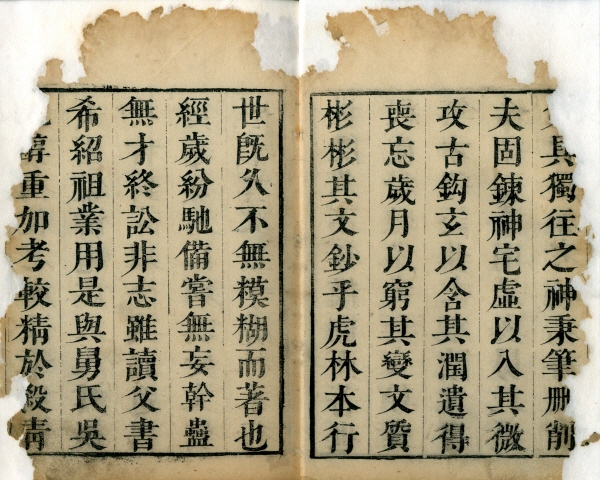 具獨往之神秉筆刪削
夫固鍊神宅虛以入其微
攻古鈎玄以含其潤遺得
喪忘歲月以窮其變文質
彬彬其文鈔乎虎林本行
世旣久不無模糊而著也
經歲紛馳備嘗無妄幹蠱
無才終訟非志雖讀父書
希紹祖業用是與舅氏吳
重加考較精於殺靑